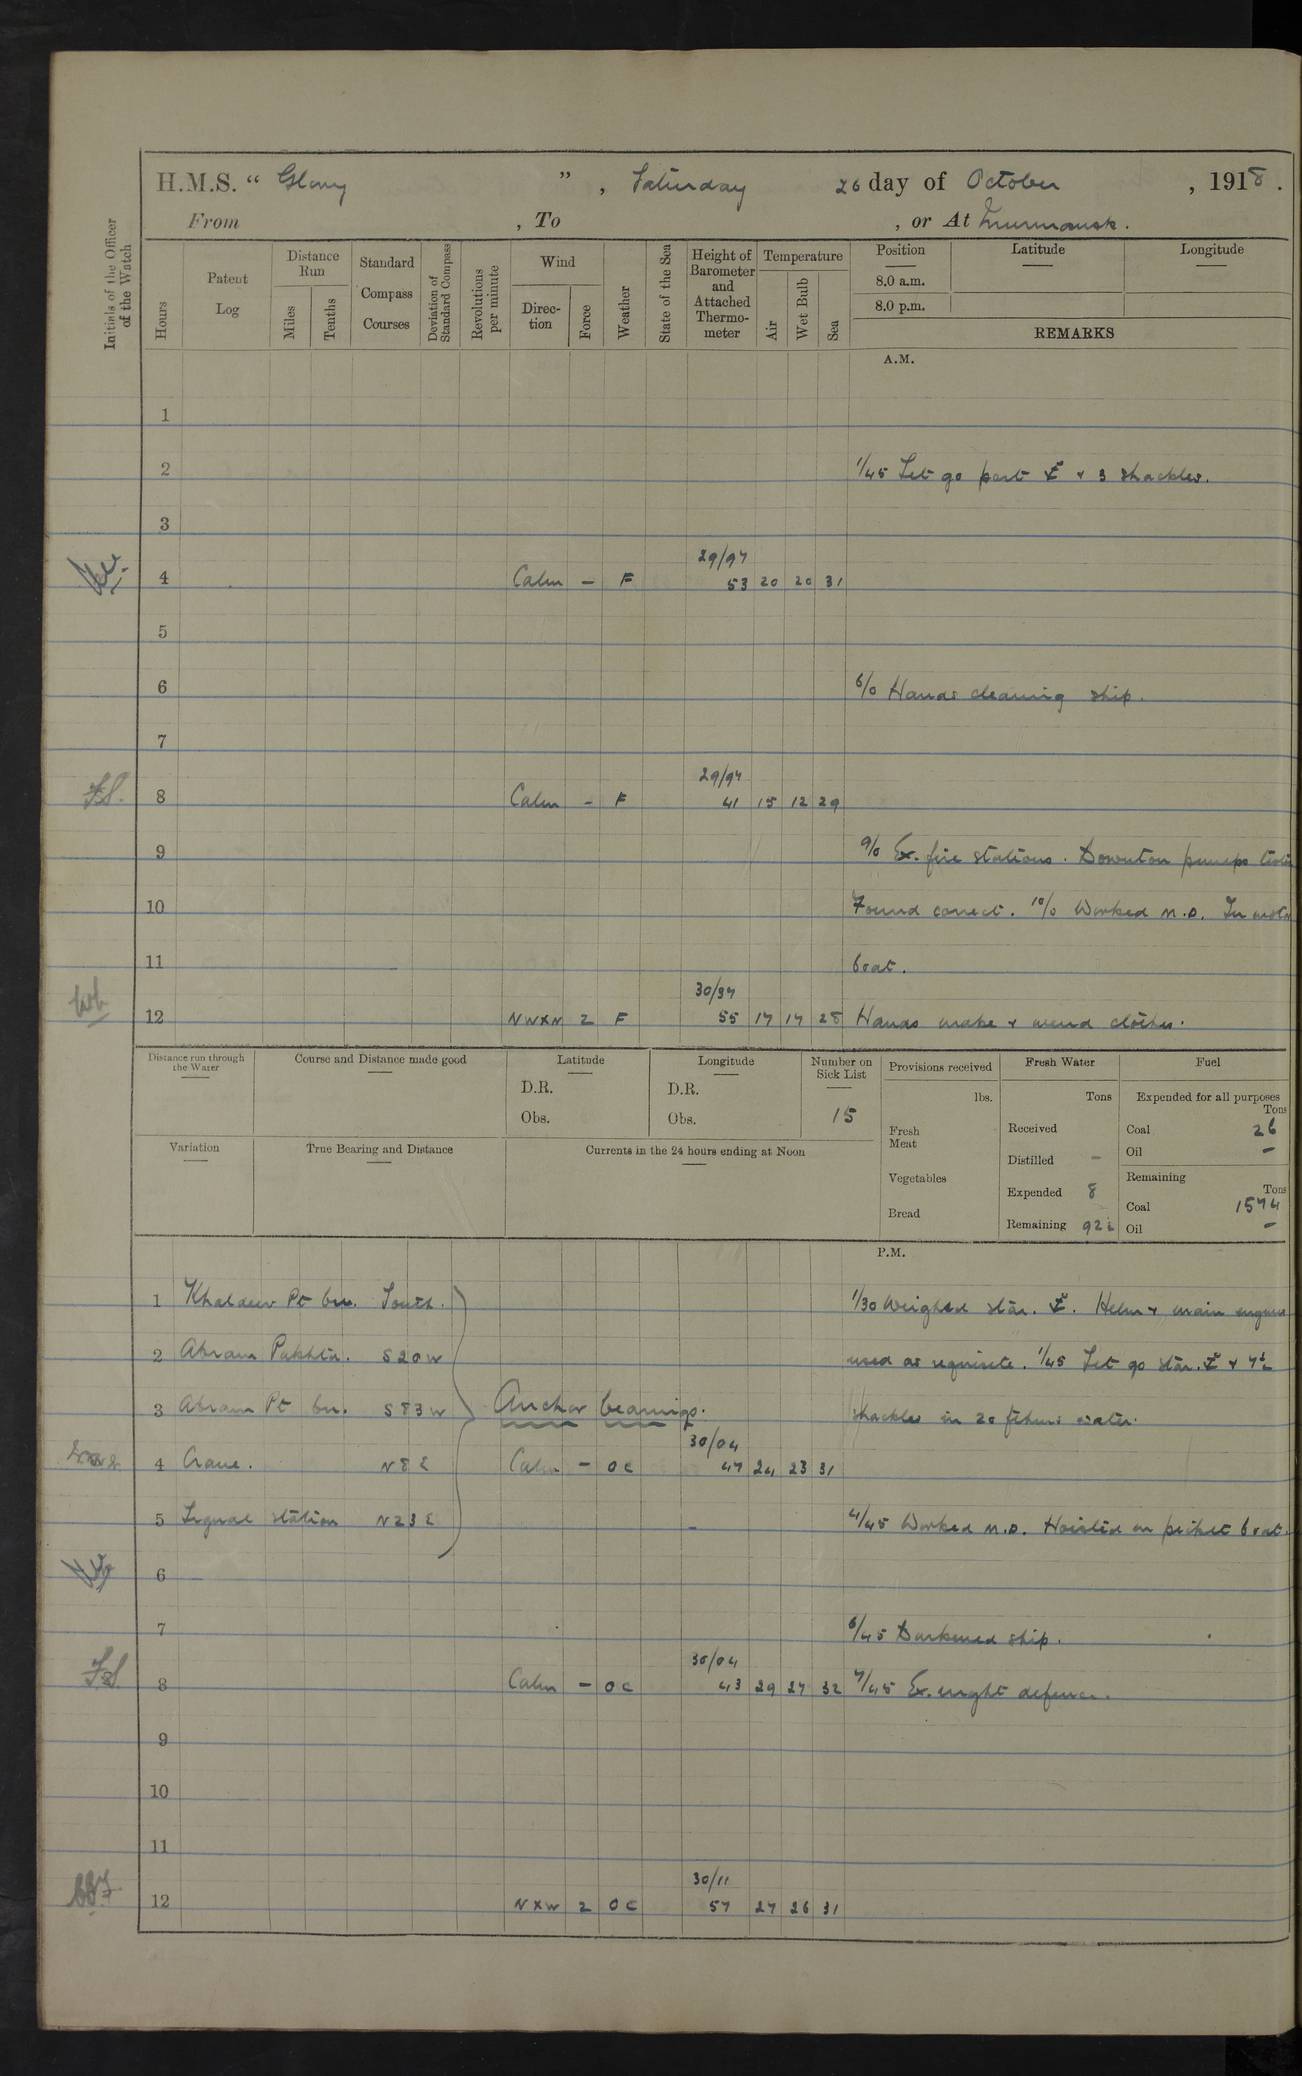 H.M.S. " Glory ", Saturday 26 day of October, 1918.
From , To , or At Murmansk.
Initials of the Officer of the Watch
Hours
Patent Log
Distance Run
Miles
Tenths
Standard Compass Courses
Deviation of Standard Compass
Revolutions per minute
Wind
Direction
Force
Weather
State of the Sea
Height of Barometer and Attached Thermometer
Temperature
Air
Wet Bulb
Sea
Position Latitude Longitude
8.0 a.m.
8.0 p.m.
REMARKS
A.M.
1
2 1/45 Let go port ⚓ & 3 shackles.
3
29/97
4 Calm - F 53 20 20 31
5
6 6/0 Hands cleaning ship.
7
29/97
8 Calm - F 41 15 12 29
9 9/0 Ex. fire stations. Downton pumps
10 Found correct. 10/0 Worked M.D. In motor
11 boat.
30/97
12 NWxN 2 F 55 17 17 28 Hands make & mend clothes.
Distance run through the Water
Course and Distance made good
Latitude
D.R.
Obs.
Longitude
D.R.
Obs.
Number on Sick List
15
Provisions received
lbs.
Fresh Meat
Vegetables
Bread
Fresh Water
Tons
Received
Distilled -
Expended 8
Remaining
Fuel
Expended for all purposes
Tons
Coal 26
Oil -
Remaining
Tons
Coal 1574
Oil -
Variation
True Bearing and Distance
Currents in the 24 hours ending at Noon
P.M.
1 Khaldeev Pt brg. South. 1/30 Weighed star. ⚓. Helm & main engines
2 Abram Pakhta. S20W used as requisite. 1/45 Let go star. ⚓ & 7½
3 Abram Pt brg. S83W Anchor bearings. shackles in 20 fthms water.
30/04
4 Crane. N8E Calm - OC 47 24 23 31
5 Signal station N23E 4/45 Worked M.D. Hoisted in picket boat.
6
7 6/45 Darkened ship.
30/04
8 Calm - OC 43 29 27 32 7/45 Ex. night defence.
9
10
11
30/11
12 NxW 2 OC 57 27 26 31